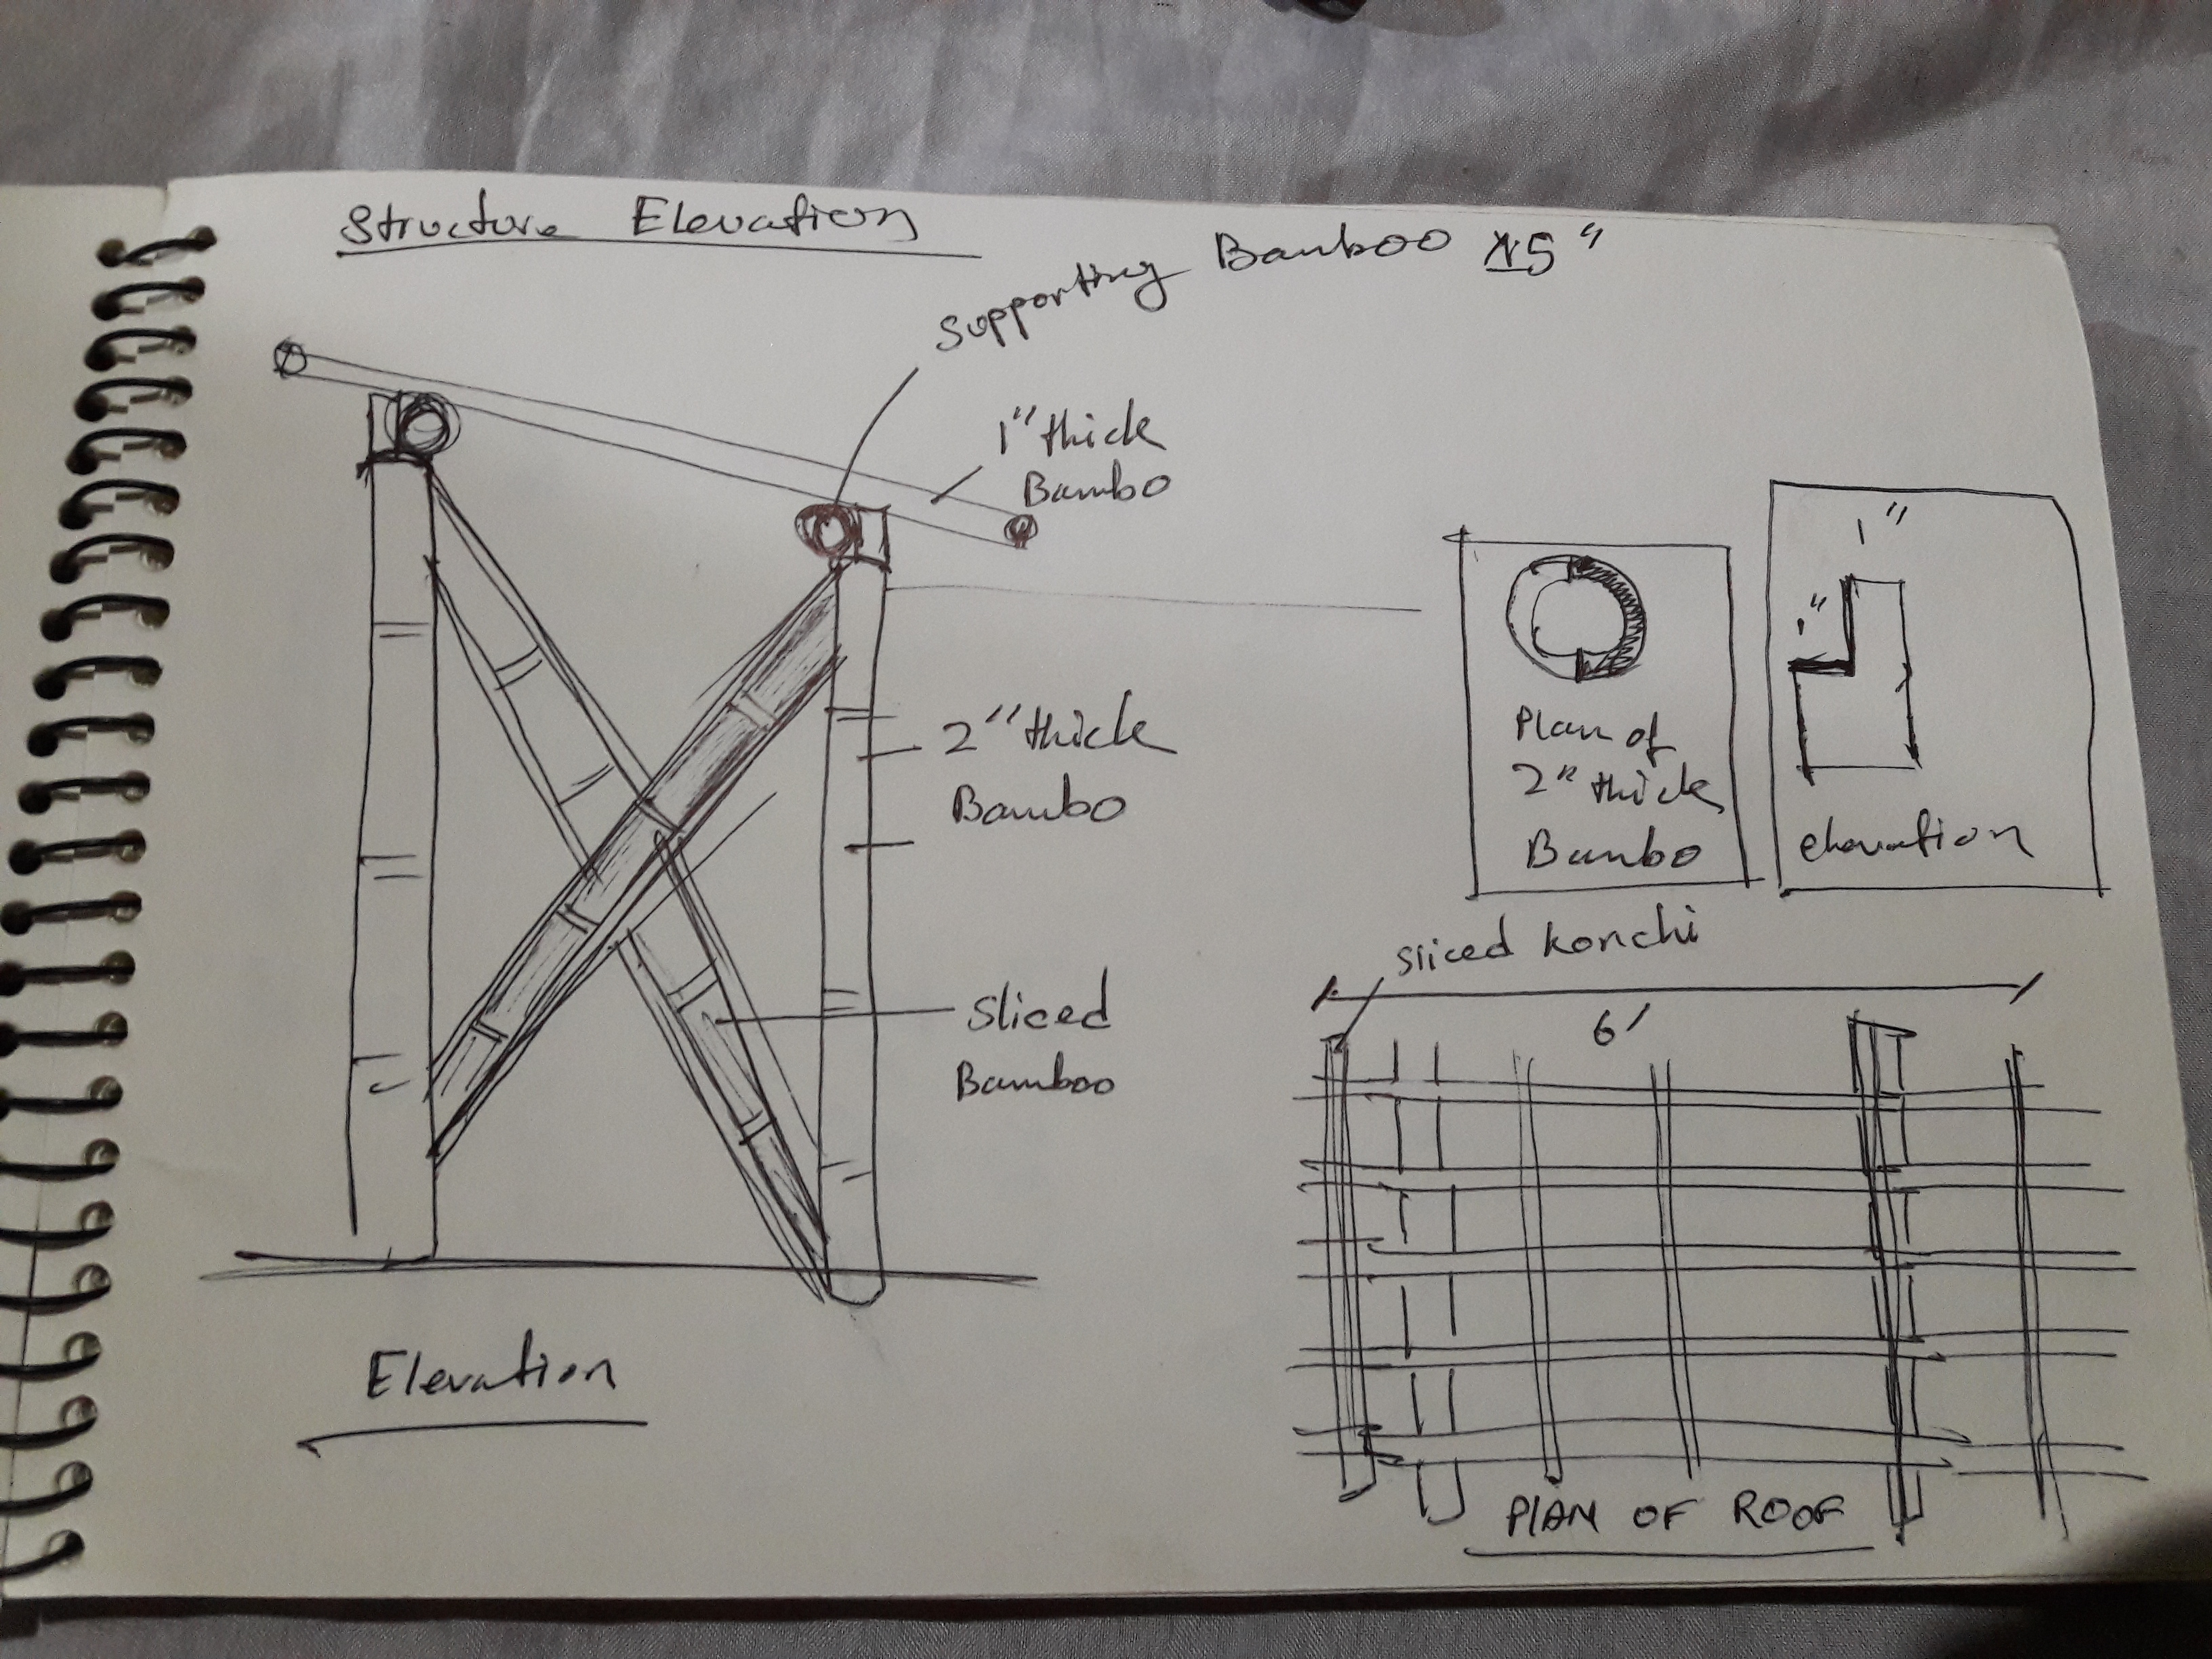 Structure Elevation
Supporting Bamboo 5"
1" thick
Bambo
2" thick
Bambo
Sliced
Bamboo
Elevation
Plan of
2" thick
Bambo
1"
1"
elevation
sliced konchi
6'
PLAN OF ROOF